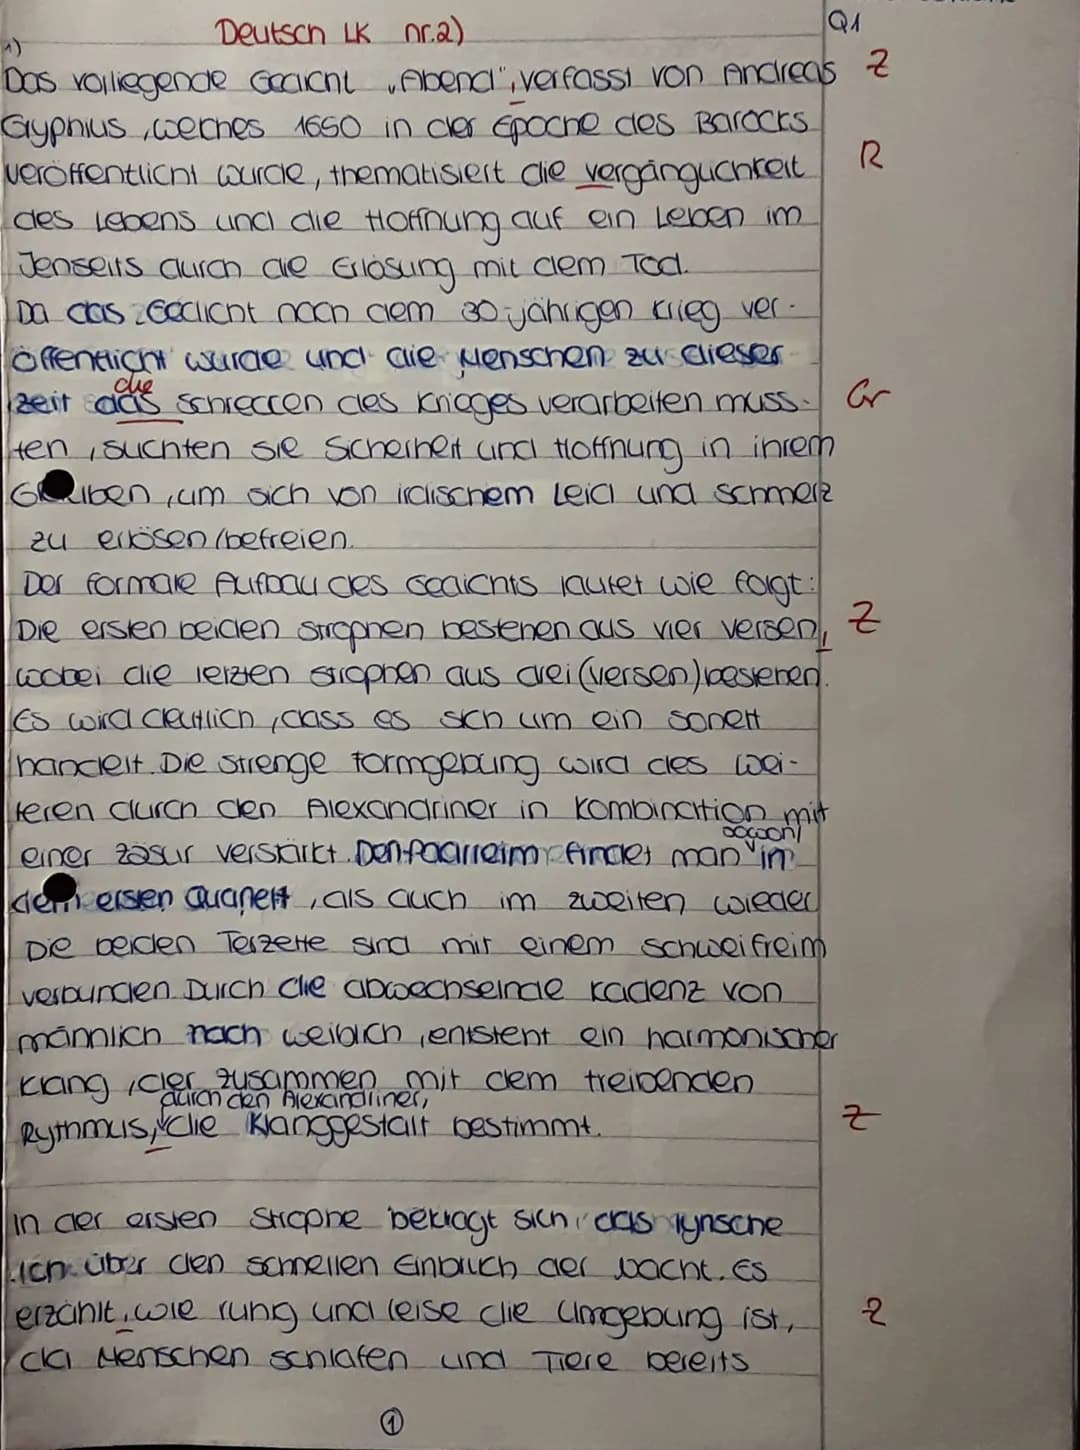 Deutsch LK nr.2)
Q1
1)
Das vorliegende Gedicht „Abend", verfasst von Andreas Z
Gryphius, welches 1650 in der Epoche des Barocks
veröffentlicht wurde, thematisiert die vergänglichkeit R
des Lebens und die Hoffnung auf ein Leben im
Jenseits durch die Erlösung mit dem Tod.
Da das Gedicht nach dem 30-jährigen Krieg ver-
öffentlicht wurde und die Menschen zu dieser
die
zeit das schrecken des Krieges verarbeiten muss- Gr
ten, suchten sie Sicherheit und Hoffnung in ihrem
Glauben, um sich von irdischem Leid und schmerz
zu erlösen/befreien.
Der formale Aufbau des Gedichts lautet wie folgt:
Die ersten beiden strophen bestehen aus vier versen, Z
wobei die letzten strophen aus drei (versen) bestehen.
Es wird deutlich, dass es sich um ein sonett
handelt. Die strenge Formgebung wird des wei-
teren durch den Alexandriner in Kombination mit
einer zäsur verstärkt. Den Paarreim findet man in
sowohl
dem ersten Quartett, als auch im zweiten wieder
Die beiden Terzette sind mit einem schweifreim
verbunden. Durch die abwechselnde kadenz von
männlich nach weiblich, entsteht ein harmonischer
klang, der zusammen mit dem treibenden
durch den Alexandriner,
Rythmus, die Klanggestalt bestimmt. Z
In der ersten Strophe beklagt sich das lyrische
Ich über den schnellen Einbruch der Nacht. Es
erzählt, wie ruhig und leise die Umgebung ist, Z
da Menschen schlafen und Tiere bereits
1